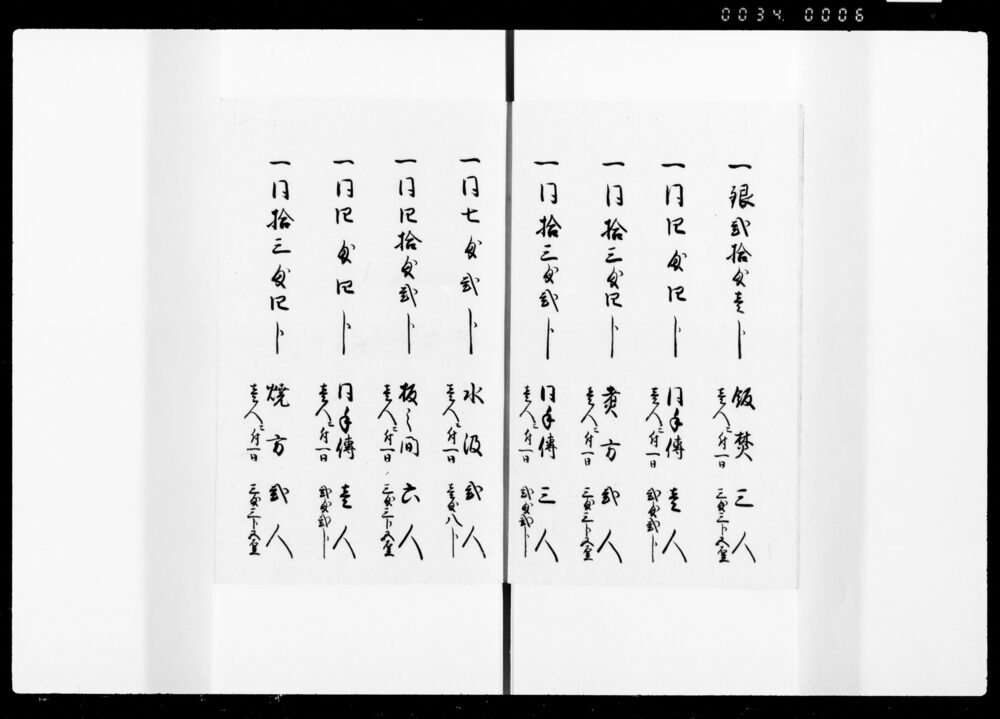 0034 0006
一銀弐拾匁壱分 飯焚 三人
壱人ニ付一日 三匁三分五厘
一同四匁四分 同手傳 壱人
壱人ニ付一日 弐匁弐分
一同拾三匁四分 煮方 弐人
壱人ニ付一日 三匁三分五厘
一同拾三匁弐分 同手傳 三人
壱人ニ付一日 弐匁弐分
一同七匁弐分 水汲 弐人
壱人ニ付一日 壱匁八分
一同四拾匁弐分 板之間 六人
壱人ニ付一日 三匁三分五厘
一同四匁四分 同手傳 壱人
壱人ニ付一日 弐匁弐分
一同拾三匁四分 焼方 弐人
壱人ニ付一日 三匁三分五厘